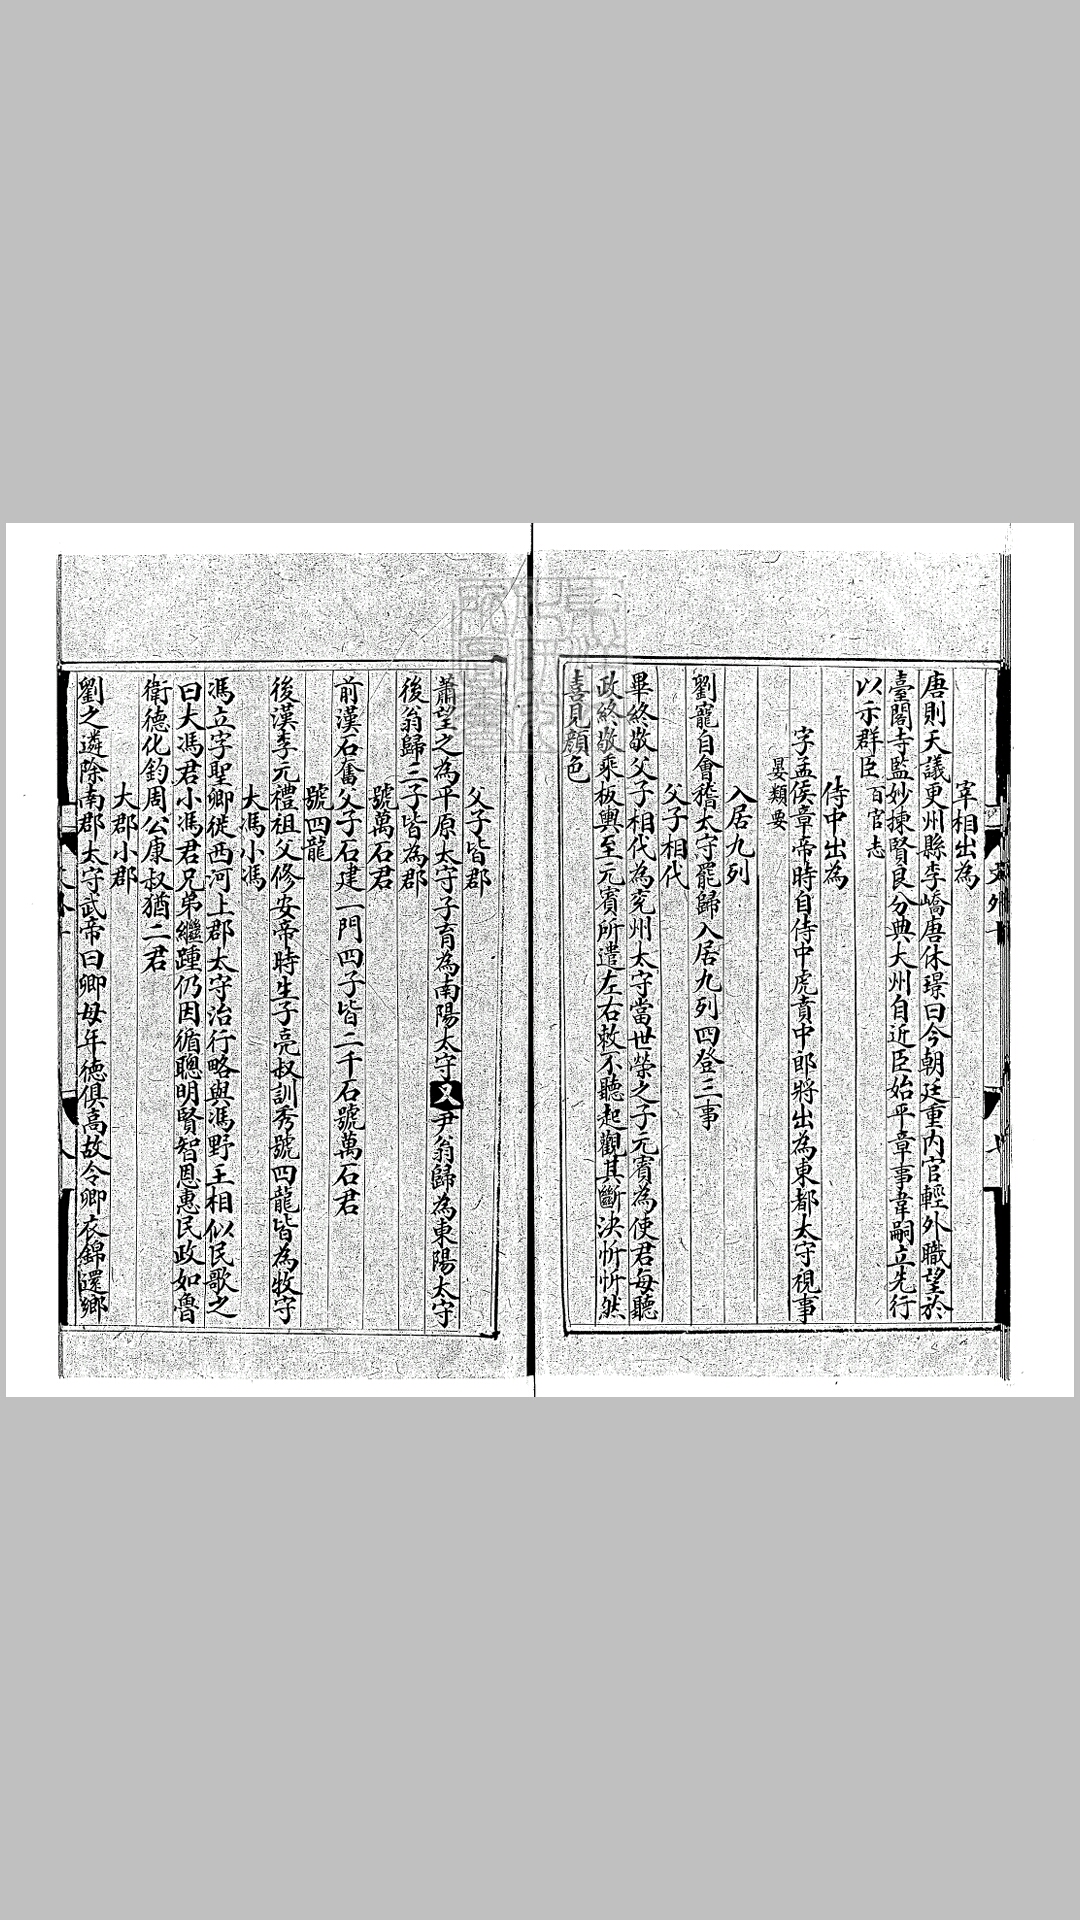 宰相出為
唐則天議更州縣李嶠唐休璟曰今朝廷重內官輕外職望於
臺閣寺監妙揀賢良分典大州自近臣始平章事韋嗣立先行
以示群臣百官志
侍中出為
字孟侯章帝時自侍中虎賁中郎將出為東都太守視事
晏類要
入居九列
劉寵自會稽太守罷歸入居九列四登三事
父子相代
畢終敬父子相代為兖州太守當世榮之子元賓為使君每聽
政終敬乘板輿至元賓所遣左右敕不聽起觀其斷決忻忻然
喜見顏色
父子皆郡
蕭望之為平原太守子育為南陽太守又尹翁歸為東陽太守
後翁歸三子皆為郡
號萬石君
前漢石奮父子石建一門四子皆二千石號萬石君
號四龍
後漢李元禮祖父修安帝時生子亮叔訓秀號四龍皆為牧守
大馮小馮
馮立字聖卿徙西河上郡太守治行略與馮野王相似民歌之
曰大馮君小馮君兄弟繼踵仍因循聰明賢智恩惠民政如魯
衛德化鈞周公康叔猶二君
大郡小郡
劉之遴除南郡太守武帝曰卿母年德俱高故令卿衣錦還鄉